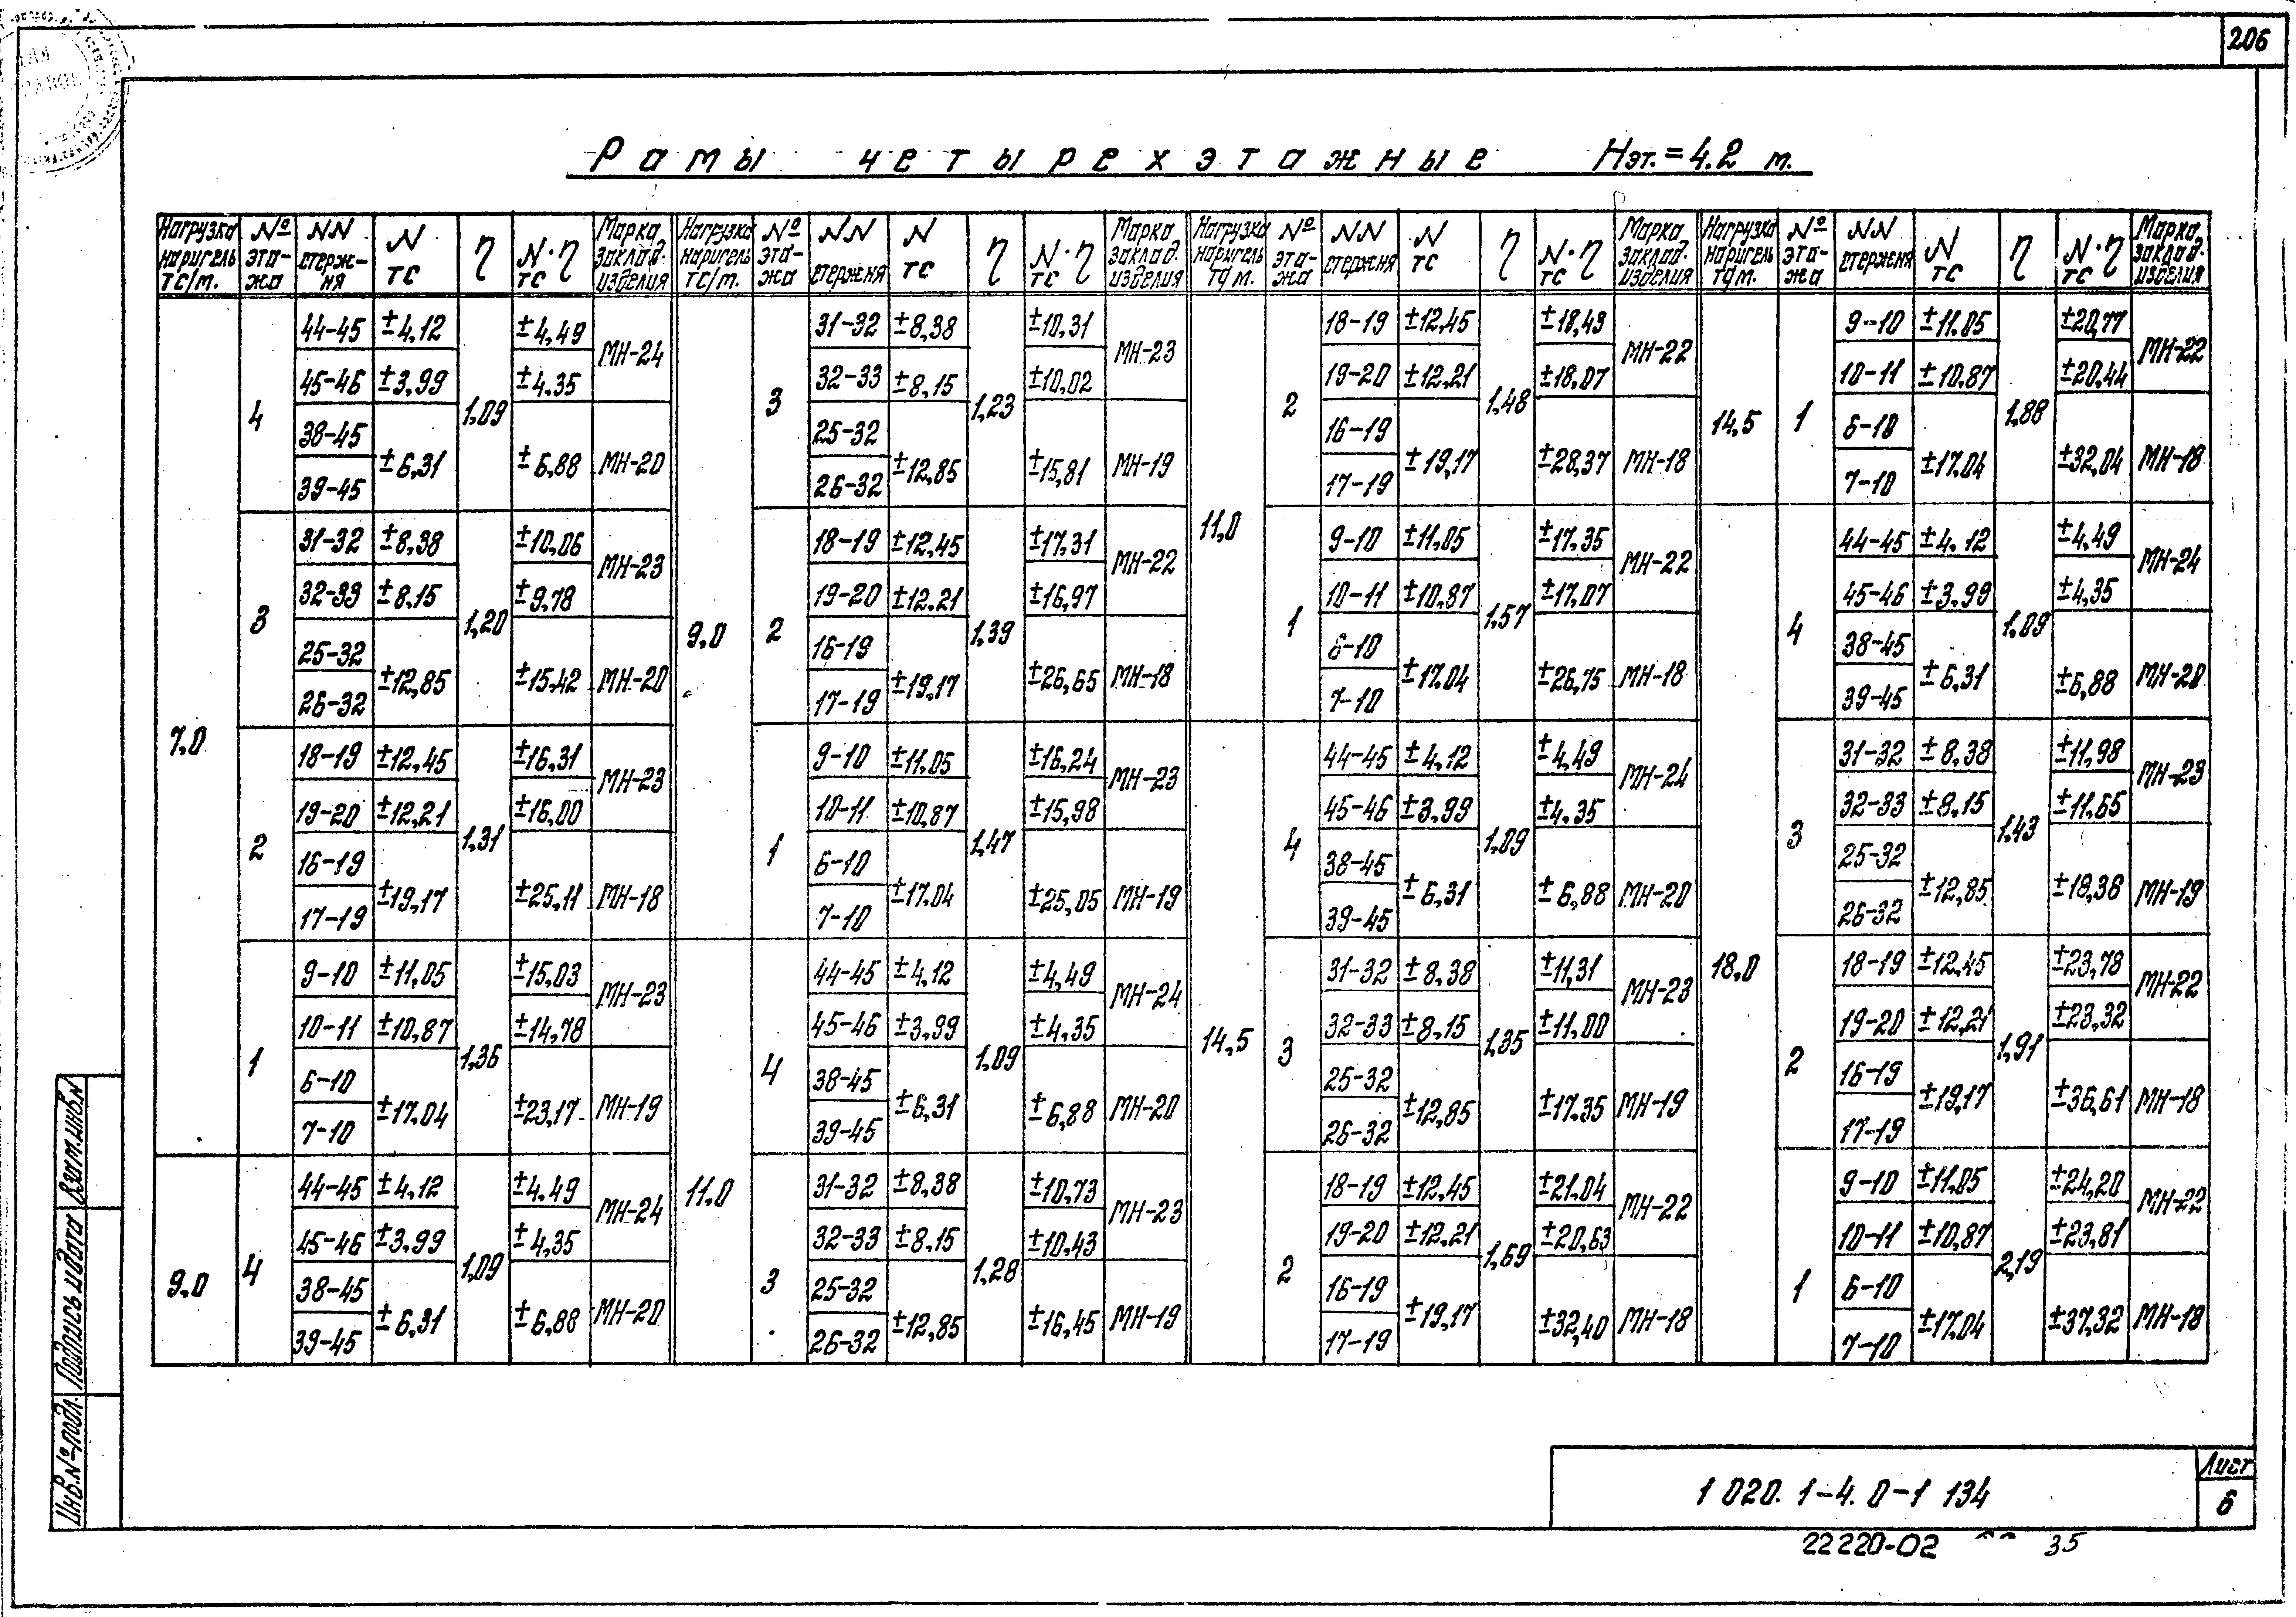 206
Рамы четырехэтажные Hэт.=4.2 м.
Нагрузка на ригель тс/м. | № этажа | NN стержня | N тс | η | N·η тс | Марка заклад. изделия
7.0 | 4 | 44-45 | ±4,12 | 1,09 | ±4,49 | МН-24
45-46 | ±3,99 | ±4,35
38-45 | ±6,31 | ±6,88 | МН-20
39-45
3 | 31-32 | ±8,38 | 1,20 | ±10,06 | МН-23
32-33 | ±8,15 | ±9,78
25-32 | ±12,85 | ±15,42 | МН-20
26-32
2 | 18-19 | ±12,45 | 1,31 | ±16,31 | МН-23
19-20 | ±12,21 | ±16,00
16-19 | ±19,17 | ±25,11 | МН-18
17-19
1 | 9-10 | ±11,05 | 1,36 | ±15,03 | МН-23
10-11 | ±10,87 | ±14,78
6-10 | ±17,04 | ±23,17 | МН-19
7-10
9.0 | 4 | 44-45 | ±4,12 | 1,09 | ±4,49 | МН-24
45-46 | ±3,99 | ±4,35
38-45 | ±6,31 | ±6,88 | МН-20
39-45
Нагрузка на ригель тс/м. | № этажа | NN стержня | N тс | η | N·η тс | Марка заклад. изделия
9.0 | 3 | 31-32 | ±8,38 | 1,23 | ±10,31 | МН-23
32-33 | ±8,15 | ±10,02
25-32 | ±12,85 | ±15,81 | МН-19
26-32
2 | 18-19 | ±12,45 | 1,39 | ±17,31 | МН-22
19-20 | ±12,21 | ±16,97
16-19 | ±19,17 | ±26,65 | МН-18
17-19
1 | 9-10 | ±11,05 | 1,47 | ±16,24 | МН-23
10-11 | ±10,87 | ±15,98
6-10 | ±17,04 | ±25,05 | МН-19
7-10
11.0 | 4 | 44-45 | ±4,12 | 1,09 | ±4,49 | МН-24
45-46 | ±3,99 | ±4,35
38-45 | ±6,31 | ±6,88 | МН-20
39-45
3 | 31-32 | ±8,38 | 1,28 | ±10,73 | МН-23
32-33 | ±8,15 | ±10,43
25-32 | ±12,85 | ±16,45 | МН-19
26-32
Нагрузка на ригель тс/м. | № этажа | NN стержня | N тс | η | N·η тс | Марка заклад. изделия
11.0 | 2 | 18-19 | ±12,45 | 1,48 | ±18,43 | МН-22
19-20 | ±12,21 | ±18,07
16-19 | ±19,17 | ±28,37 | МН-18
17-19
1 | 9-10 | ±11,05 | 1,57 | ±17,35 | МН-22
10-11 | ±10,87 | ±17,07
6-10 | ±17,04 | ±26,75 | МН-18
7-10
14,5 | 4 | 44-45 | ±4,12 | 1,09 | ±4,49 | МН-24
45-46 | ±3,99 | ±4,35
38-45 | ±6,31 | ±6,88 | МН-20
39-45
3 | 31-32 | ±8,38 | 1,35 | ±11,31 | МН-23
32-33 | ±8,15 | ±11,00
25-32 | ±12,85 | ±17,35 | МН-19
26-32
2 | 18-19 | ±12,45 | 1,69 | ±21,04 | МН-22
19-20 | ±12,21 | ±20,63
16-19 | ±19,17 | ±32,40 | МН-18
17-19
Нагрузка на ригель тс/м. | № этажа | NN стержня | N тс | η | N·η тс | Марка заклад. изделия
14,5 | 1 | 9-10 | ±11,05 | 1,88 | ±20,77 | МН-22
10-11 | ±10,87 | ±20,44
6-10 | ±17,04 | ±32,04 | МН-18
7-10
18,0 | 4 | 44-45 | ±4,12 | 1,09 | ±4,49 | МН-24
45-46 | ±3,99 | ±4,35
38-45 | ±6,31 | ±6,88 | МН-20
39-45
3 | 31-32 | ±8,38 | 1,43 | ±11,98 | МН-23
32-33 | ±8,15 | ±11,65
25-32 | ±12,85 | ±18,38 | МН-19
26-32
2 | 18-19 | ±12,45 | 1,91 | ±23,78 | МН-22
19-20 | ±12,21 | ±23,32
16-19 | ±19,17 | ±36,61 | МН-18
17-19
1 | 9-10 | ±11,05 | 2,19 | ±24,20 | МН-22
10-11 | ±10,87 | ±23,81
6-10 | ±17,04 | ±37,32 | МН-18
7-10
Инв.№ подл. Подпись и дата Взам.инв.N
1 020. 1-4. 0-1 134
Лист
6
22220-02 35